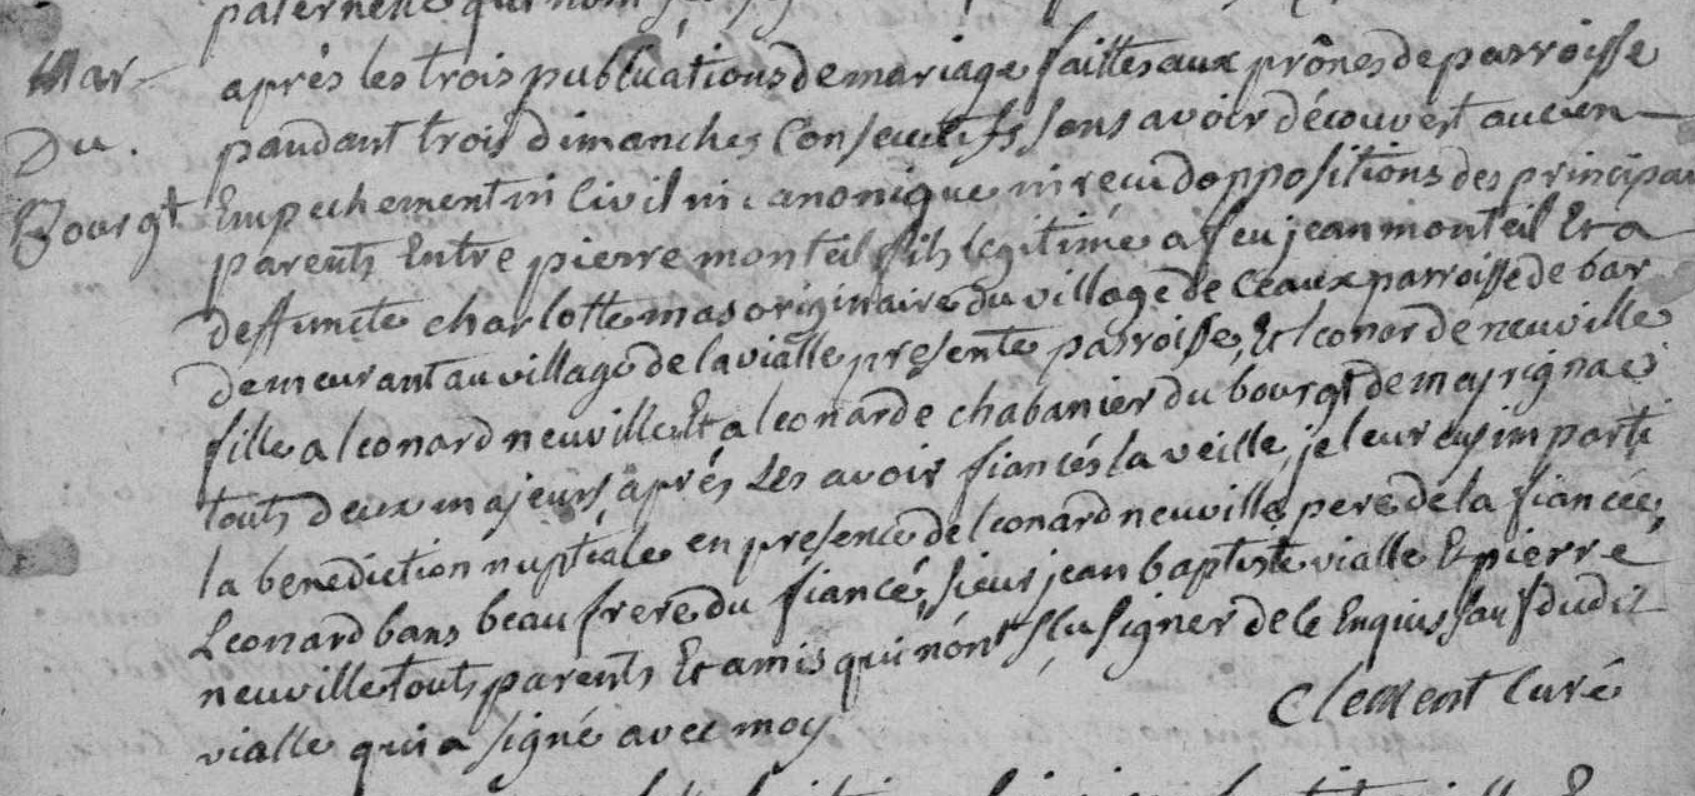 paternelle qui n'ont
Mar
Du.
Bourgt
après les trois publications de mariage faittes aux prônes de parroisse
pandant trois dimanches Consecutifs sans avoir découvert aucun
Empechement ni Civil ni canonique ni recu doppositions des principau
parents Entre pierre monteil fils legitime a feu jean monteil Et a
deffuncte charlotte mas originaire du village de Ceaux parroisse de bar
demeurant au village de lavialle presente parroisse, Et leonarde neuville
fille a leonard neuville Et a leonarde chabanier du bourgt de meyrignac
touts deux majeurs, après Les avoir fiancés la veille, je leur ey imparti
la benediction nuptiale en presence de leonard neuville pere de la fiancée,
Leonard bans beaufrere du fiancé, sieur jean baptiste vialle Et pierre
neuville touts parents Et amis qui n'ont sçu signer de ce Enquis sauf dudit
vialle qui a signé avec moy
Clement Curé